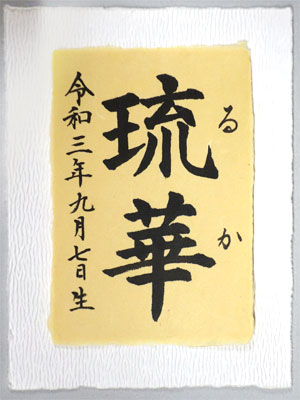 るか
琉華
令和三年九月七日生